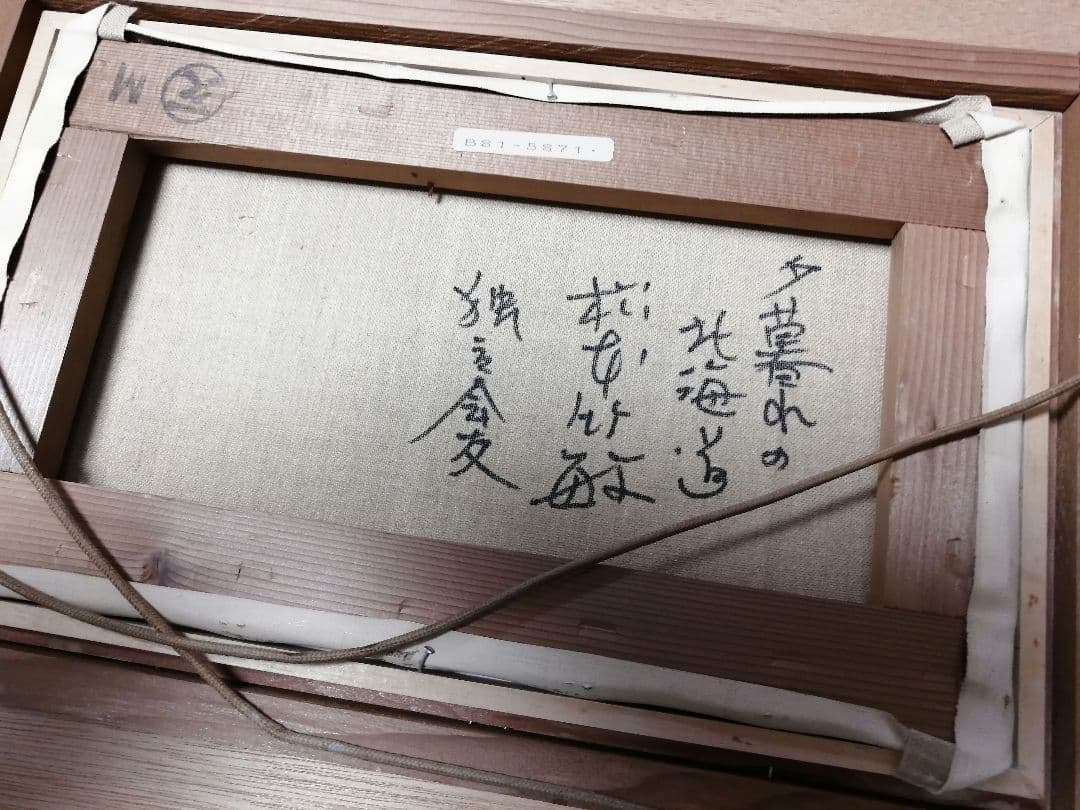 夕暮れの
北海道
松本竹敏
独立会友
B81-5871.
M